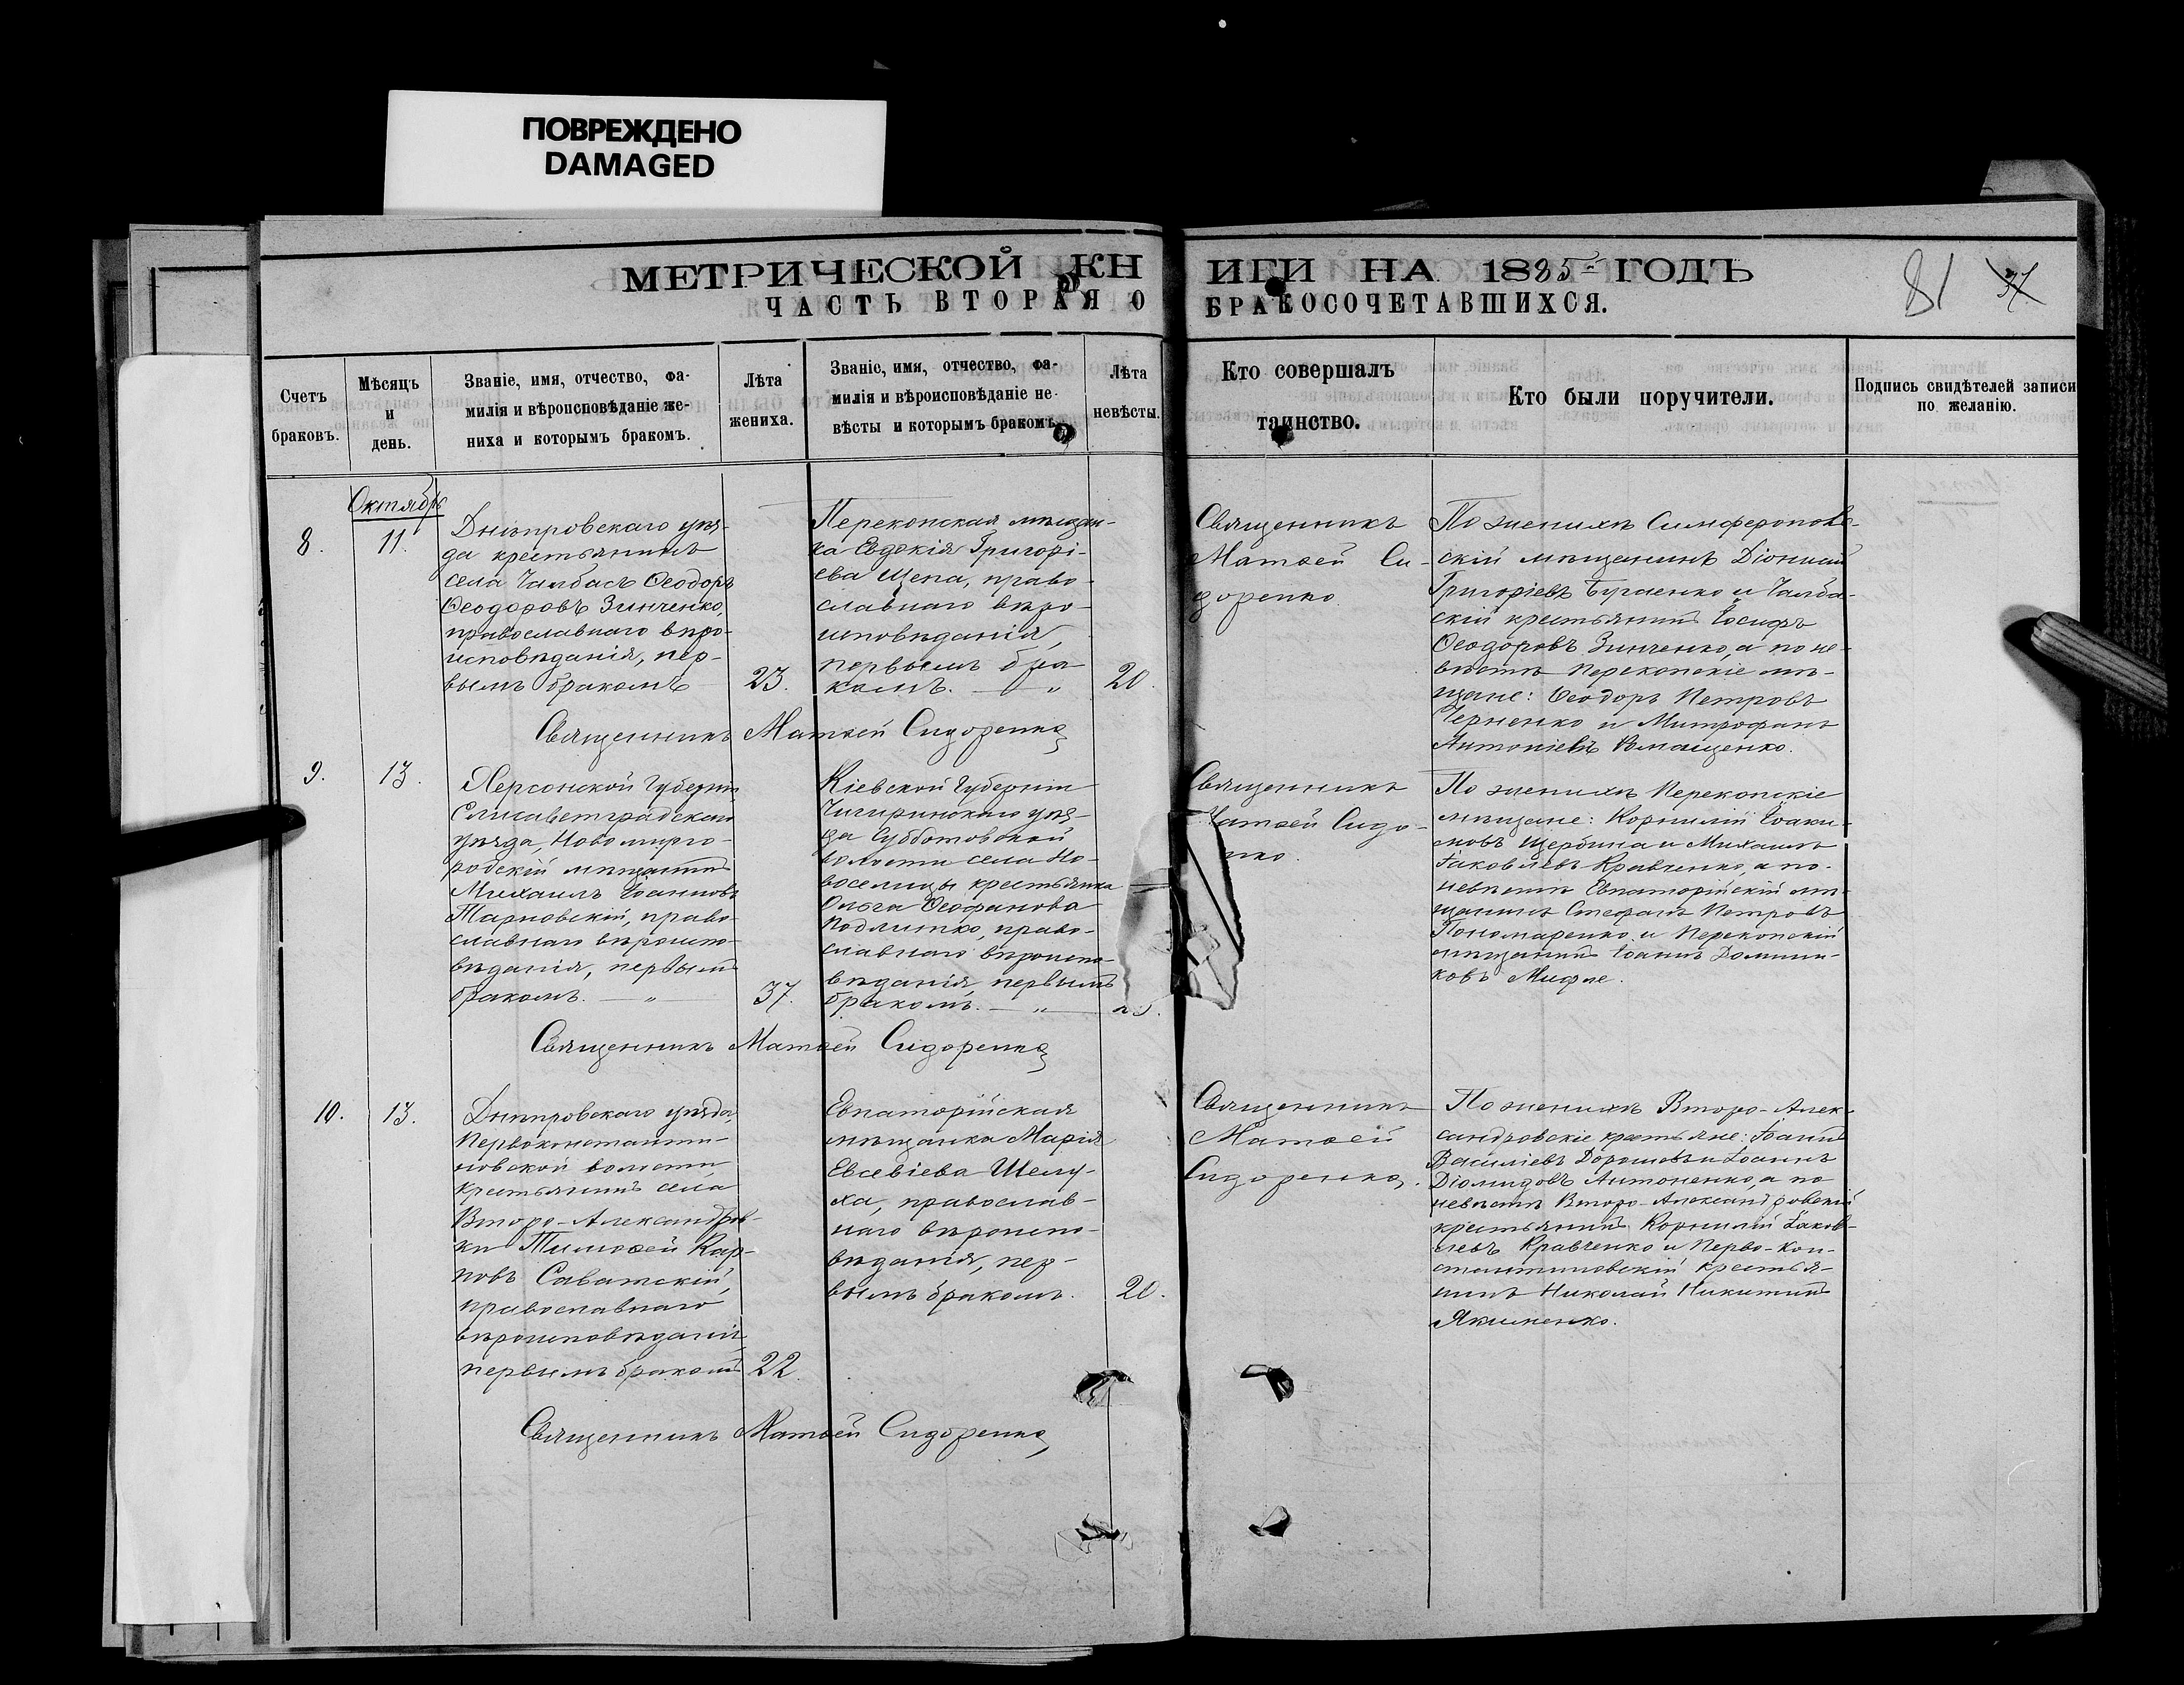 ПОВРЕЖДЕНО
DAMAGED
МЕТРИЧЕСКОЙ КНИГИ НА 1885 ГОДЪ
ЧАСТЬ ВТОРАЯ О БРАКОСОЧЕТАВШИХСЯ.
81
37
Счетъ
браковъ.
Мѣсяцъ
и
день.
Званіе, имя, отчество, фа-
милія и вѣроисповѣданіе же-
ниха и которымъ бракомъ.
Лѣта
жениха.
Званіе, имя, отчество, фа-
милія и вѣроисповѣданіе не-
вѣсты и которымъ бракомъ.
Лѣта
невѣсты.
Кто совершалъ
таинство.
Кто были поручители.
Подпись свидѣтелей записи
по желанію.
Октябрь
8.
11.
Днѣпровскаго уѣз-
да крестьянинъ
села Чалбасъ Ѳеодоръ
Ѳеодоровъ Зинченко,
православнаго вѣро-
исповѣданія, пер-
вымъ бракомъ
23.
Перекопская мѣщан-
ка Евдокія Григорі-
ева Щепа, право-
славнаго вѣро-
исповѣданія,
первымъ бра-
комъ. — „
20.
Священникъ
Матѳей Си-
доренко.
По женихѣ Симферополь-
скій мѣщанинъ Діонисій
Григоріевъ и Чалба-
скій крестьянинъ Іосифъ
Ѳеодоровъ Зинченко, а по не-
вѣстѣ Перекопскіе мѣ-
щане: Ѳеодоръ Петровъ
Черненко и Митрофанъ
Антоніевъ
Священникъ Матѳей Сидоренко
9.
13.
Херсонской Губерніи,
Елисаветградскаго
уѣзда, Новомирго-
родскій мѣщанинъ
Михаилъ Іоанновъ
Тарновскій, право-
славнаго вѣроиспо-
вѣданія, первымъ
бракомъ. — „ —
37.
Кіевской Губерніи
Чигиринскаго уѣз-
да Субботовской
волости села Но-
воселицы крестьянка
Ольга Ѳеофанова
православнаго вѣроиспо-
вѣданія, первымъ
бракомъ. — „ —
Священникъ
Матѳей Сидо-
нко.
По женихѣ Перекопскіе
мѣщане: Корнилій Іоаки-
мовъ Щербина и Михаилъ
Іаковлевъ Кравченко, а по
невѣстѣ Евпаторійскій мѣ-
щанинъ Стефанъ Петровъ
Пономаренко и Перекопскій
мѣщанинъ Іоаннъ Домини-
ковъ
Священникъ Матѳей Сидоренко
10.
13.
Днѣпровскаго уѣзда,
Первоконстанти-
новской волости
крестьянинъ села
Второ-Александров-
ки Тимоѳей Кар-
повъ Саватскій,
православнаго
вѣроисповѣданія,
первымъ бракомъ
22.
Евпаторійская
мѣщанка Марія
Евсевіева Шелу-
ха, православ-
наго вѣроиспо-
вѣданія, пер-
вымъ бракомъ.
20.
Священникъ
Матѳей
Сидоренко.
По женихѣ Второ-Алек-
сандровскіе крестьяне: Іоаннъ
Василіевъ Дорошовъ и Іоаннъ
Діомидовъ Антоненко, а по
невѣстѣ Второ-Александровскій
крестьянинъ Корнилій Іаков-
левъ Кравченко и Перво-Кон-
стантиновскій крестья-
нинъ Николай Никитинъ
Якименко.
Священникъ Матѳей Сидоренко